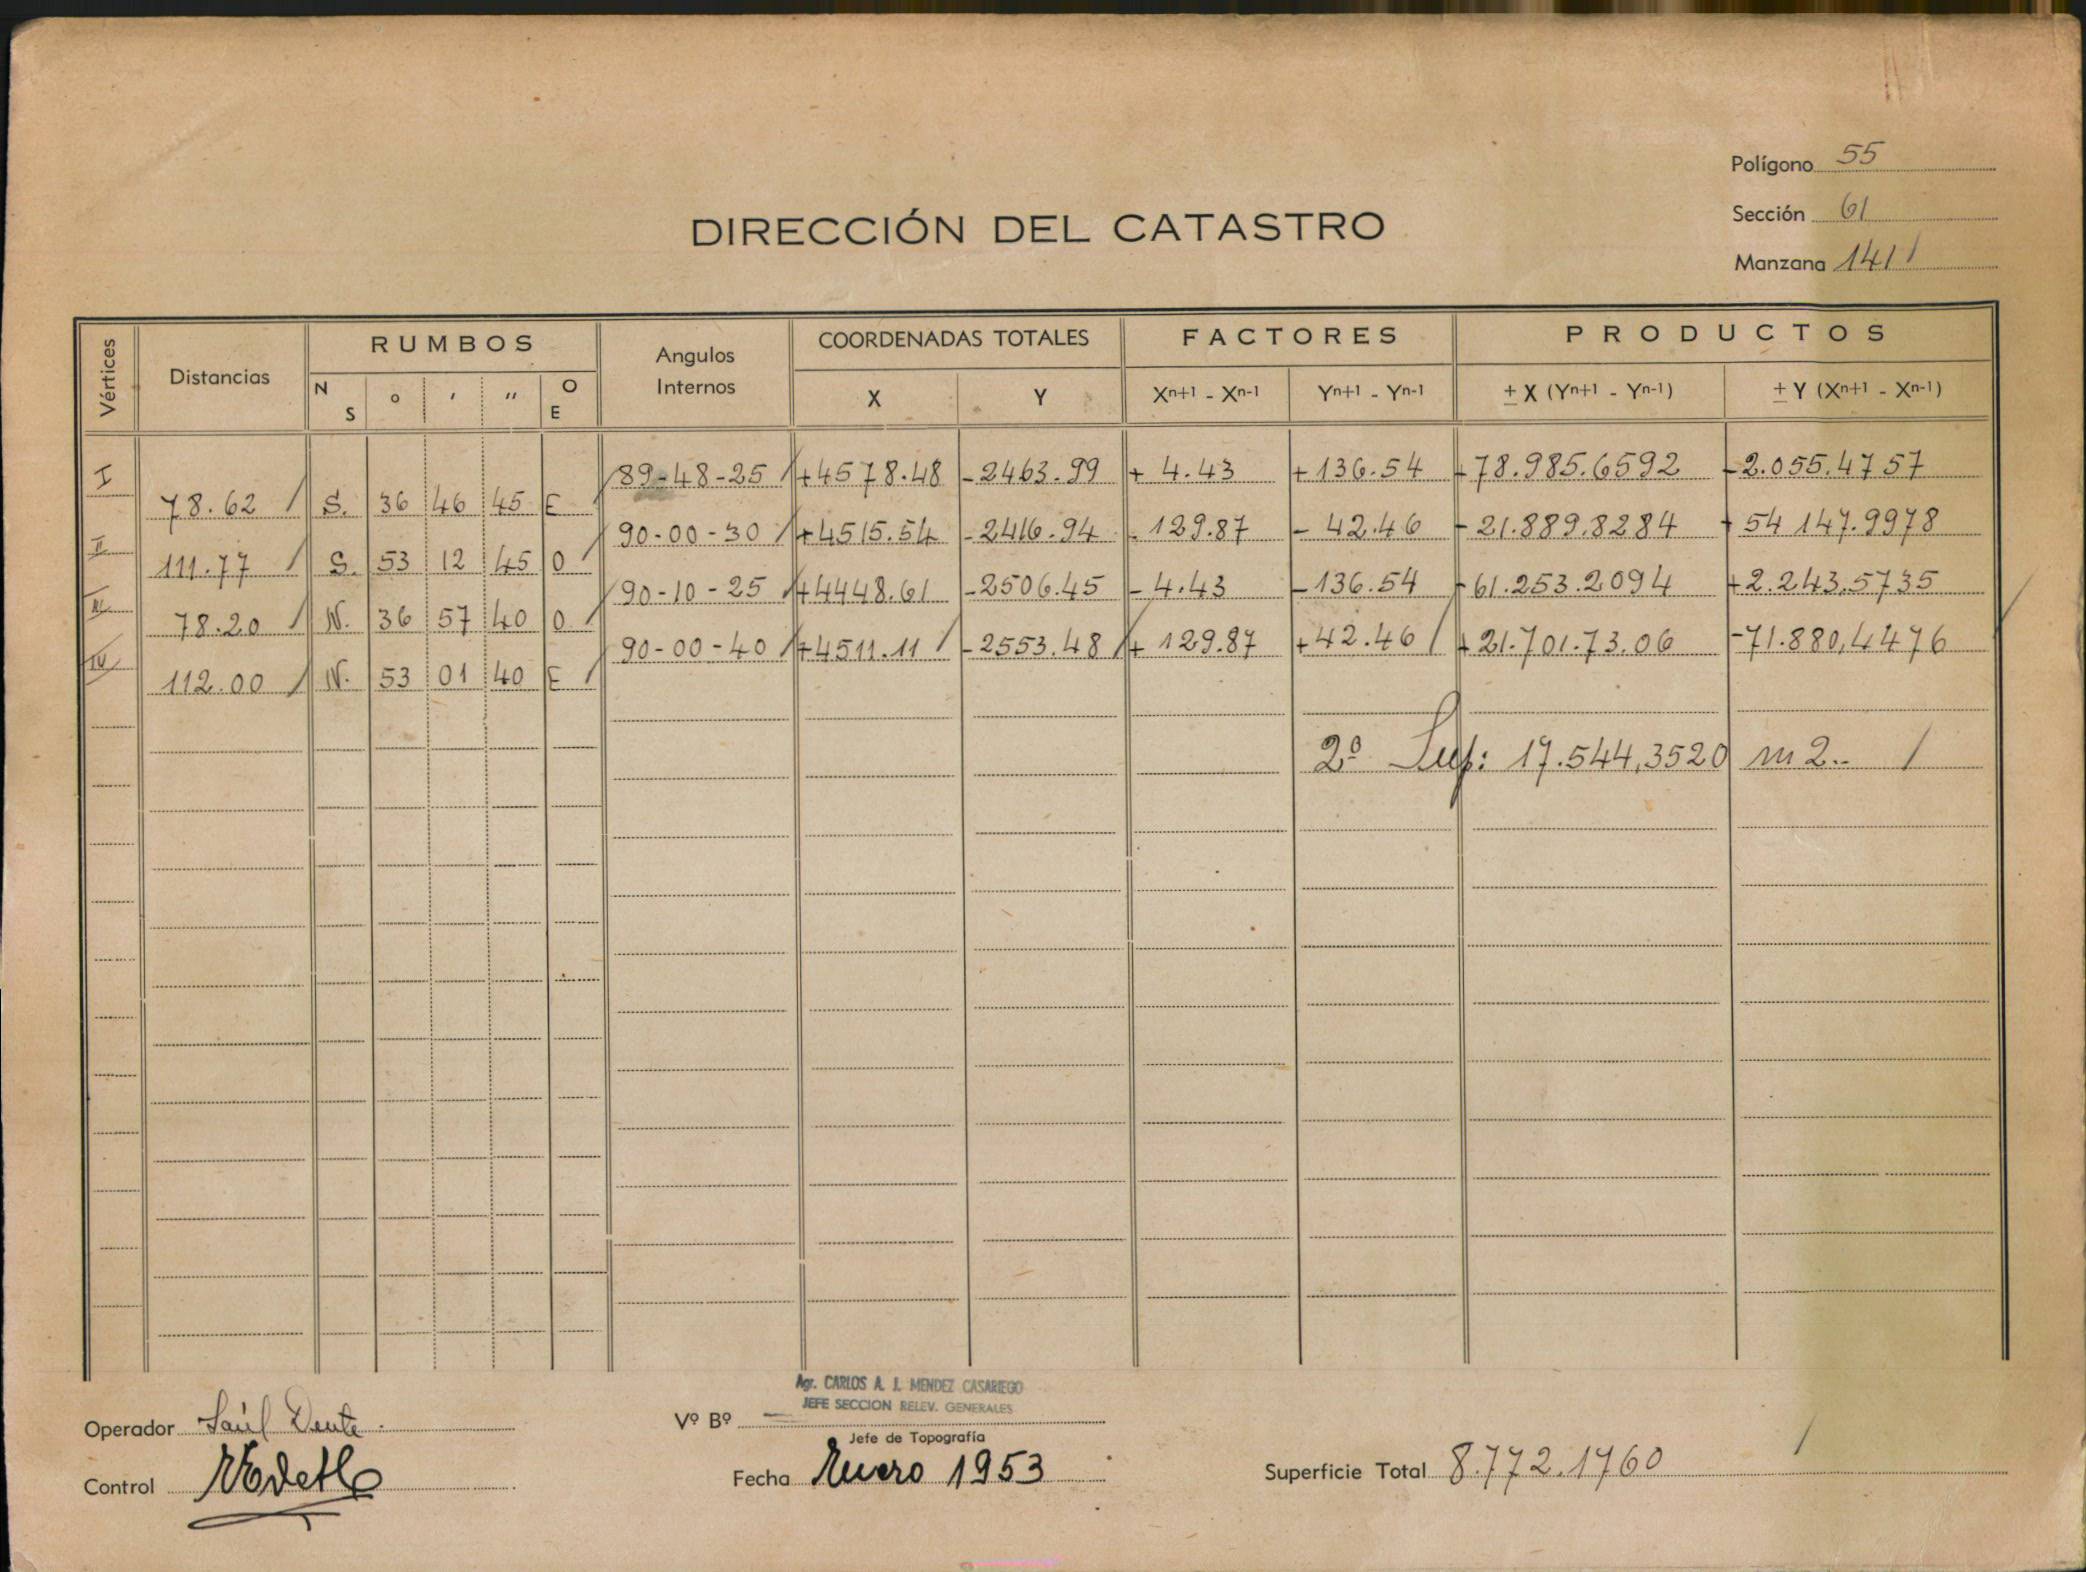 Polígono 55
Sección 61
Manzana 1411
DIRECCIÓN DEL CATASTRO
Vértices Distancias RUMBOS Angulos Internos COORDENADAS TOTALES FACTORES PRODUCTOS
N S ° ′ ″ O E X Y Xn+1 - Xn-1 Yn+1 - Yn-1 ± X (Yn+1 - Yn-1) ± Y (Xn+1 - Xn-1)
I 89-48-25 +4578.48 -2463.99 + 4.43 +136.54 +78.985.6592 -2.055.4757
78.62 S. 36 46 45 E
II 90-00-30 +4515.54 -2416.94 - 129.87 - 42.46 -21.889.8284 +54 147.9978
111.77 S. 53 12 45 O
III 90-10-25 +4448.61 -2506.45 - 4.43 -136.54 -61.253.2094 +2.243.5735
78.20 N. 36 57 40 O
IV 90-00-40 +4511.11 -2553.48 + 129.87 +42.46 +21.701.73.06 -71.880,4476
112.00 N. 53 01 40 E
2ª Sup: 17.544,3520 m2..
Agr. CARLOS A. J. MENDEZ CASARIEGO
JEFE SECCION RELEV. GENERALES
Operador Saúl Dente
Vº Bº
Jefe de Topografía
Control
Fecha Enero 1953
Superficie Total 8.772.1760